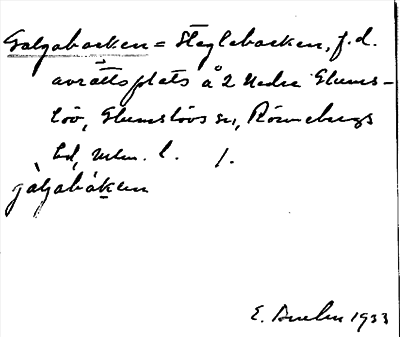 Galgabacken = Steglebacken, f.d.
avrättsplats å 2 Nedre Glums-
löv, Glumslövs sn, Rönnebergs
hd, Mlm. l. 1.
gàljabáken
E. 1933